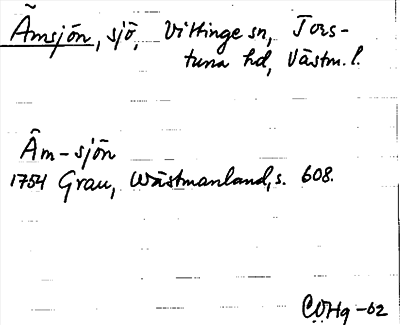 Åmsjön, sjö, Vittinge sn, Tors-
tuna hd, Västm. l.
Åm-sjön
1754 Grau, Wästmanland, s. 608.
COHg -02